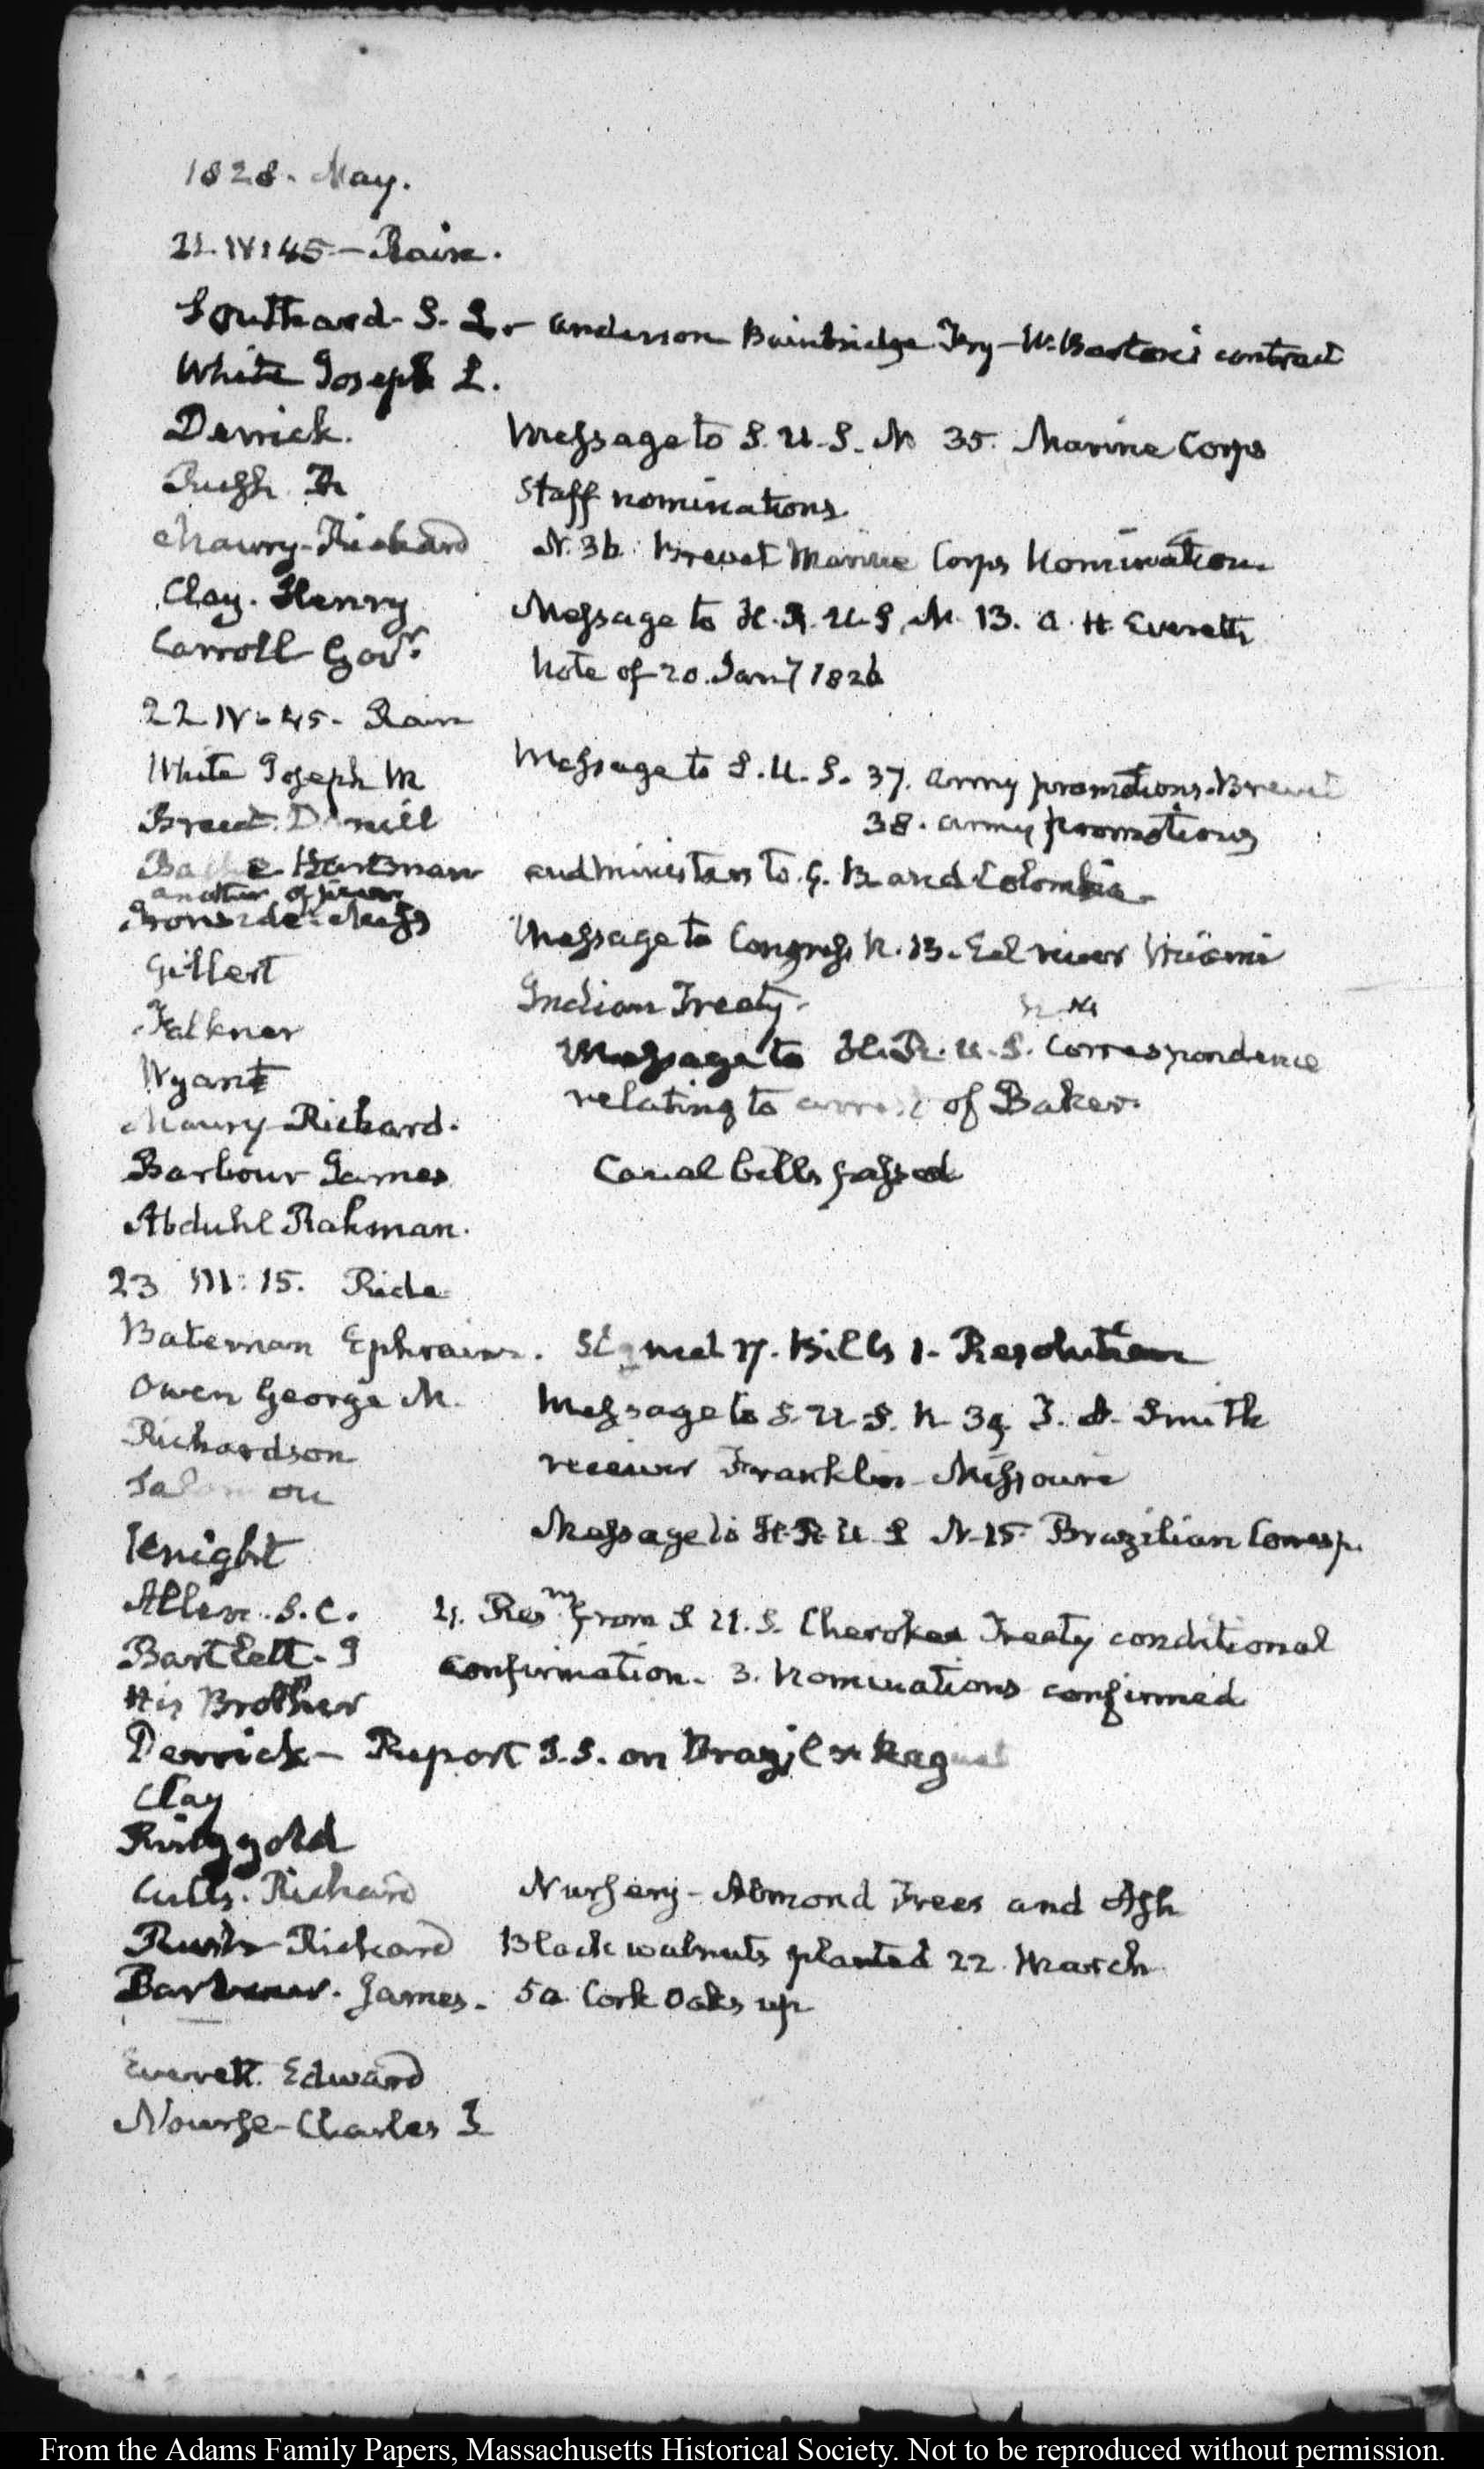 1828. May.
21. IV: 45 - Rain.
Southard. S. L. - Anderson Bainbridge Fry - W. Barton's contract
White Joseph L.
Derrick. Message to S. U. S. N 35. Marine Corps
Rush R Staff nominations
Maury - Richard N. 36. Brevet Marine Corps Nomination
Clay. Henry Message to H. R. U S. N. 13. A. H. Everett's
Carroll Govr. Note of 20. Jany 1826
22 IV. 45. Rain
White Joseph M Message to S. U. S. 37. Army promotions. Brevet
Breed. Daniell 38. Army promotions
Hartman and ministers to G. B. and Colombia
another officer
Ironside. Message to Congress N. 13. Eel river Miami
Gilbert Indian Treaty.
Falkner N 14
Wyant Message to H. R. U. S. Correspondence
Maury - Richard. relating to arrest of Baker.
Barbour James Canal bills passed
Abduhl Rahman.
23 III: 15. Ride
Bateman Ephraim. Signed 17. Bills 1. Resolution
Owen George M. Message to S. U. S. N 39. J. Smith
Richardson receiver Franklin - Missouri
Message to H. R U S N. 15 Brazilian Corresp.
Knight
Allen. S. C. 4. Resns from S U. S. Cherokee Treaty conditional
Bartlett. I confirmation. 3. Nominations confirmed
His Brother
Derrick - Report S. S. on Brazil & Raguet
Clay
Ringgold
Cutts. Richard Nursery - Almond Trees and Ash
Rush - Richard Black walnuts planted 22. March
Barbour. James. 50 Cork Oaks up
Everett. Edward
Nourse - Charles J
From the Adams Family Papers, Massachusetts Historical Society. Not to be reproduced without permission.